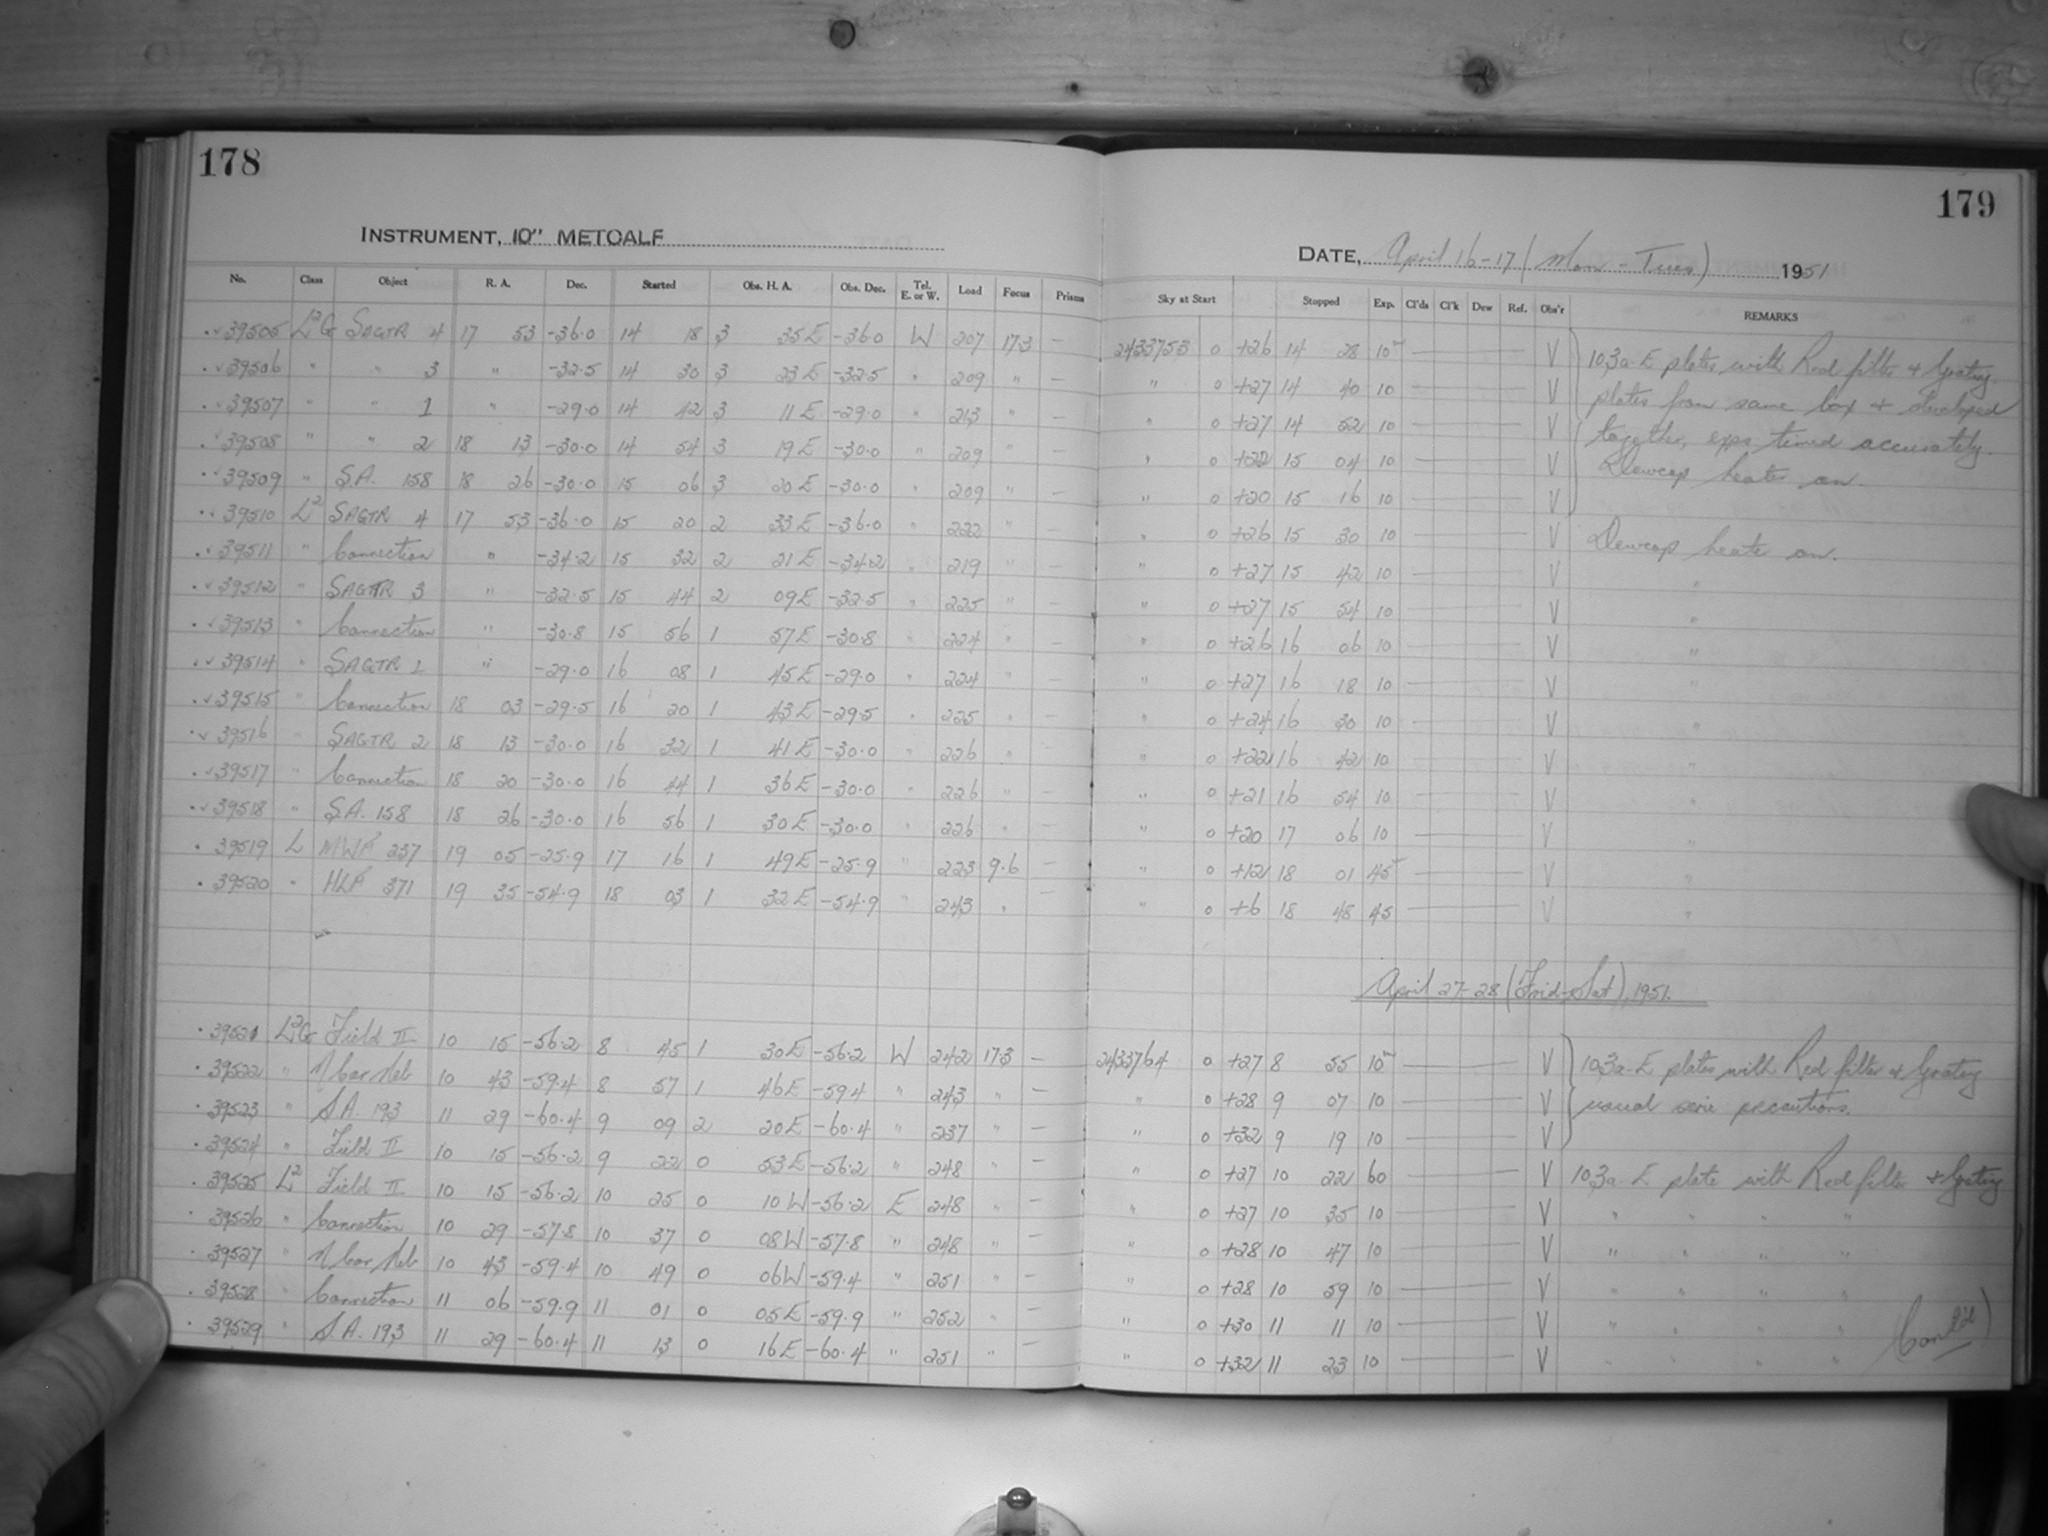 178
179
INSTRUMENT, 10" METCALF
DATE, April 16-17 (Mon - Tues) 1951
No. Class Object R. A. Dec. Started Obs. H. A. Obs. Dec. Tel. E. or W. Load Focus Prisms Sky at Start Stopped Exp. Cl'ds Cl'k Dew Ref. Obs'r REMARKS
39505 L²G SAGTR 4 17 53 -36.0 14 18 3 35 E -36.0 W 207 17.3 — 2433753 0 +26 14 28 10 V 103a-E plates with Red filter & Grating.
39506 " " 3 " -32.5 14 30 3 23 E -32.5 " 209 " — " 0 +27 14 40 10 V plates from same box & developed
39507 " " 1 " -29.0 14 42 3 11 E -29.0 " 213 " — " 0 +27 14 52 10 V together, exps timed accurately.
39508 " " 2 18 13 -30.0 14 54 3 19 E -30.0 " 209 " — " 0 +22 15 04 10 V Dewcap heater on.
39509 " S.A. 158 18 26 -30.0 15 06 3 20 E -30.0 " 209 " — " 0 +20 15 16 10 V
39510 L² SAGTR 4 17 53 -36.0 15 20 2 33 E -36.0 " 222 " — " 0 +26 15 30 10 V Dewcap heater on.
39511 " Connection " -34.2 15 32 2 21 E -34.2 " 219 " — " 0 +27 15 42 10 V "
39512 " SAGTR 3 " -32.5 15 44 2 09 E -32.5 " 225 " — " 0 +27 15 54 10 V "
39513 " Connection " -30.8 15 56 1 57 E -30.8 " 224 " — " 0 +26 16 06 10 V "
39514 " SAGTR 1 " -29.0 16 08 1 45 E -29.0 " 224 " — " 0 +27 16 18 10 V "
39515 " Connection 18 03 -29.5 16 20 1 43 E -29.5 " 225 " — " 0 +24 16 30 10 V "
39516 " SAGTR 2 18 13 -30.0 16 32 1 41 E -30.0 " 226 " — " 0 +22 16 42 10 V "
39517 " Connection 18 20 -30.0 16 44 1 36 E -30.0 " 226 " — " 0 +21 16 54 10 V "
39518 " S.A. 158 18 26 -30.0 16 56 1 30 E -30.0 " 226 " — " 0 +20 17 06 10 V "
39519 L MWF 237 19 05 -25.9 17 16 1 49 E -25.9 " 223 9.6 — " 0 +12 18 01 45 V "
39520 " HLF 371 19 35 -54.9 18 03 1 32 E -54.9 " 243 " — " 0 +6 18 48 45 V "
April 27-28 (Frid-Sat), 1951.
39521 L²G Field II 10 15 -56.2 8 45 1 30 E -56.2 W 242 17.3 — 2433764 0 +27 8 55 10 V 103a-E plates with Red filter & Grating
39522 " η Car Neb 10 43 -59.4 8 57 1 46 E -59.4 " 243 " — " 0 +28 9 07 10 V usual precautions.
39523 " S.A. 193 11 29 -60.4 9 09 2 20 E -60.4 " 237 " — " 0 +32 9 19 10 V
39524 " Field II 10 15 -56.2 9 22 0 53 E -56.2 " 248 " — " 0 +27 10 22 60 V 103a-E plate with Red filter & Grating
39525 L² Field II 10 15 -56.2 10 25 0 10 W -56.2 E 248 " — " 0 +27 10 35 10 V " " " "
39526 " Connection 10 29 -57.8 10 37 0 08 W -57.8 " 248 " — " 0 +28 10 47 10 V " " " "
39527 " η Car Neb 10 43 -59.4 10 49 0 06 W -59.4 " 251 " — " 0 +28 10 59 10 V " " " "
39528 " Connection 11 06 -59.9 11 01 0 05 E -59.9 " 252 " — " 0 +30 11 11 10 V " " " "
39529 " S.A. 193 11 29 -60.4 11 13 0 16 E -60.4 " 251 " — " 0 +32 11 23 10 V " " " "
Cont'd)